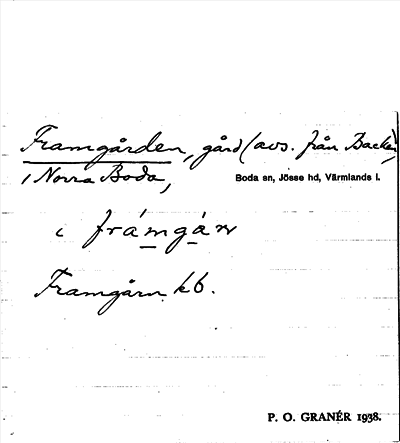 Framgården, gård (avs. från Backa),
i Norra Boda,
Boda sn, Jösse hd, Värmlands l.
i frámgá̀rn
Framgårn kb.
P. O. GRANÉR 1938.